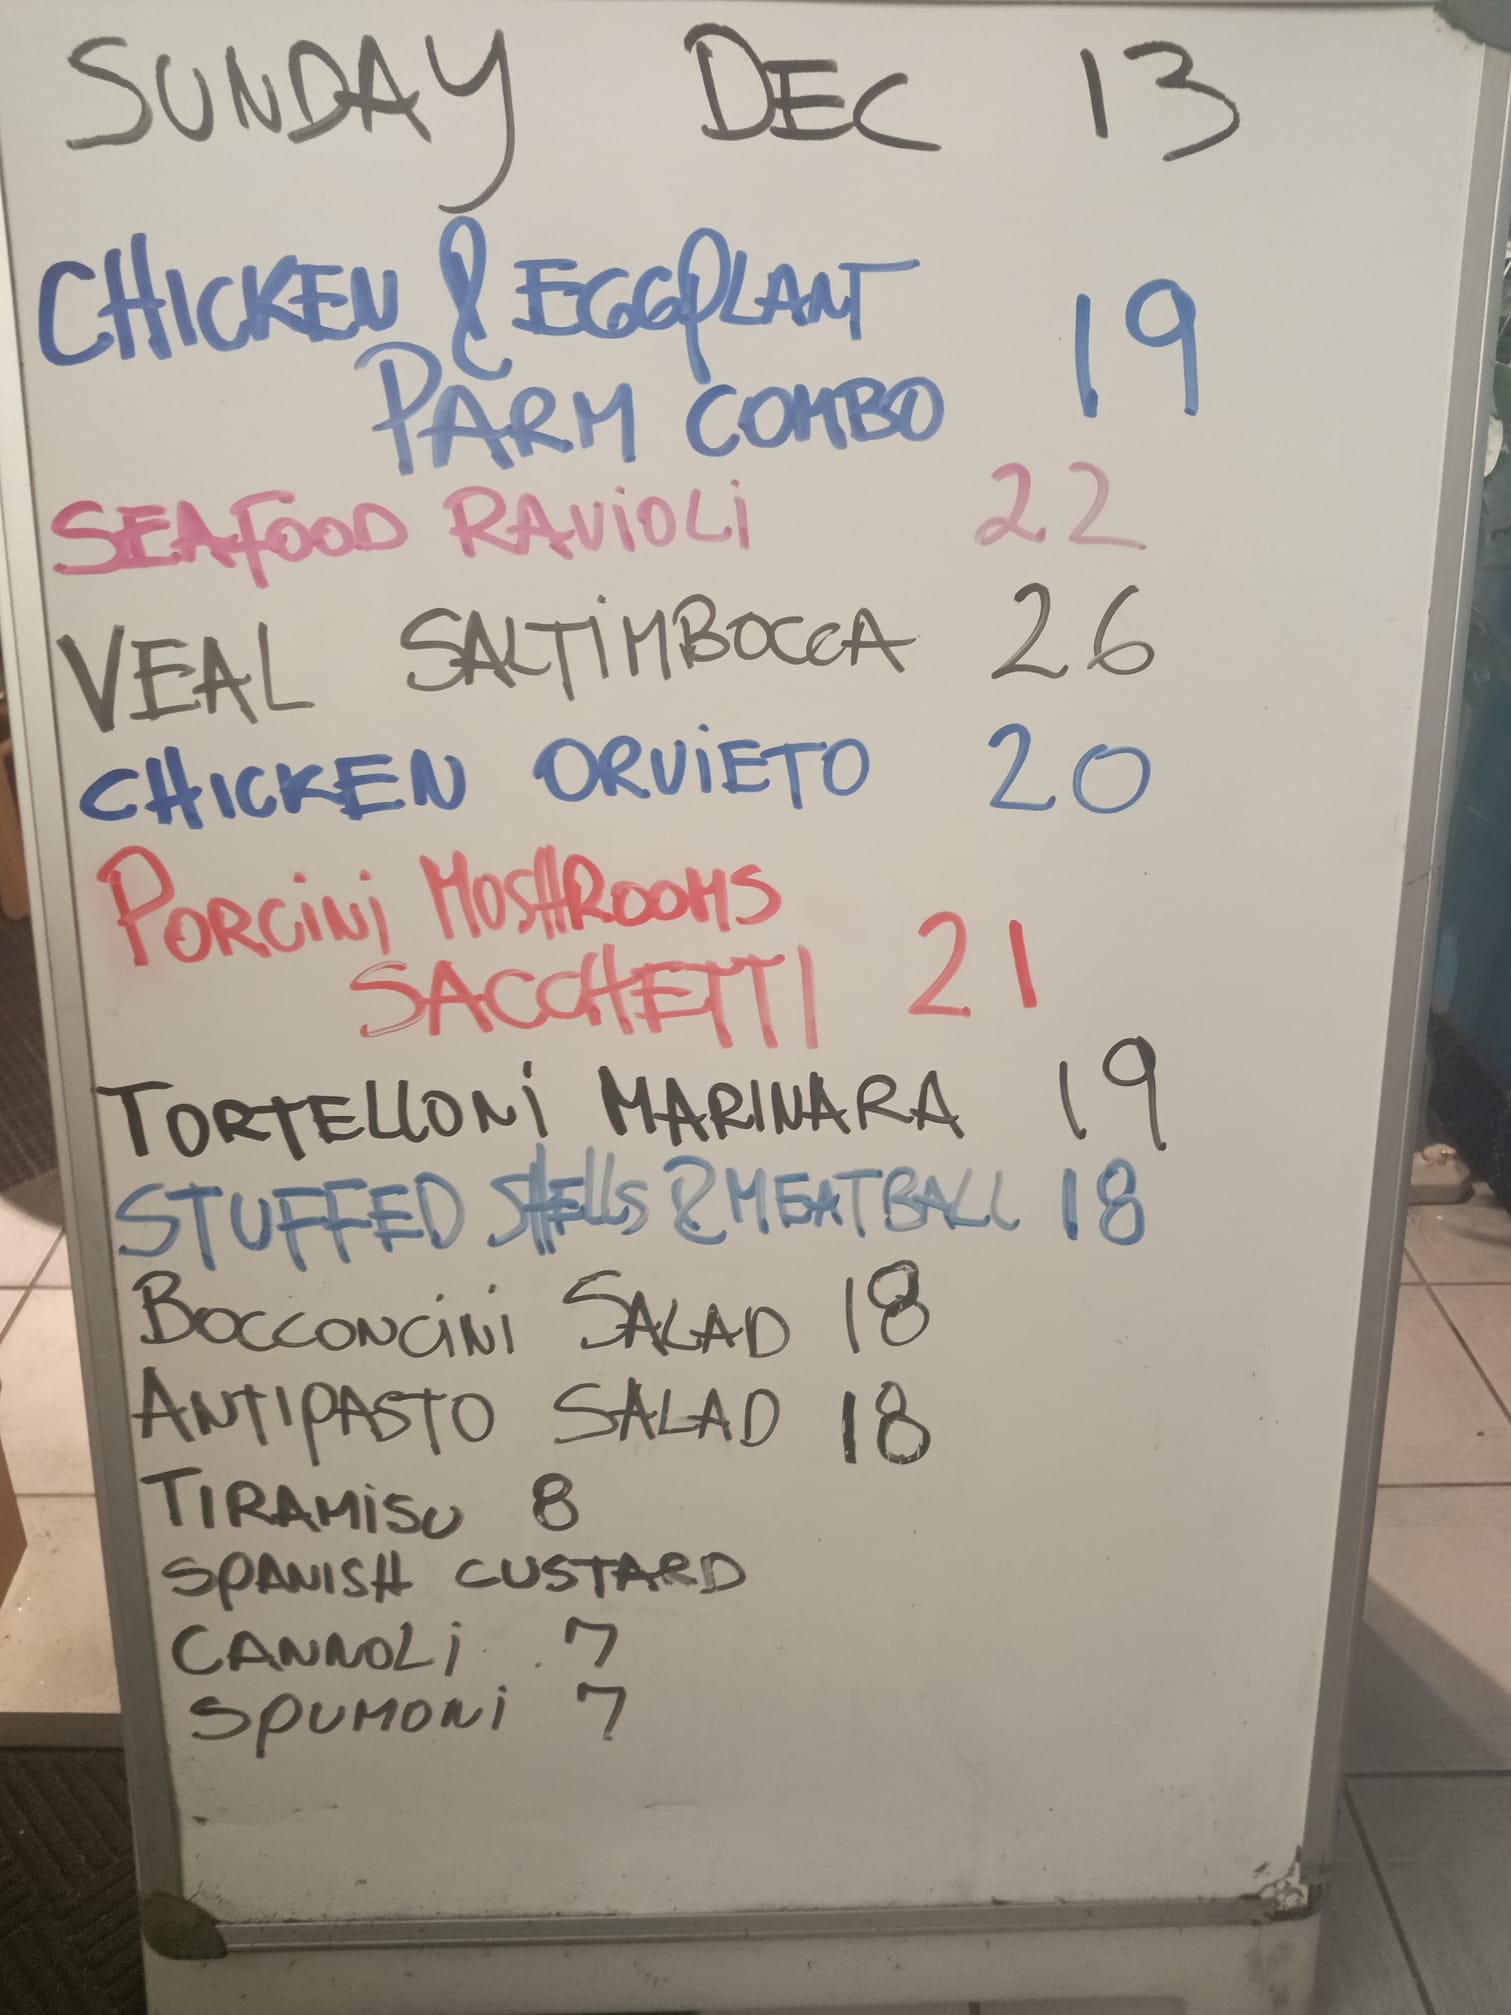 SUNDAY DEC 13
CHICKEN & EGGPLANT
PARM COMBO 19
SEAFOOD RAViOLi 22
VEAL SALTiMBOCCA 26
CHICKEN ORViETO 20
PORCiNi MUSHROOMS
SACCHETTI 21
TORTELLONi MARINARA 19
STUFFED SHElls & MEATBALL 18
BOCCONCiNi SALAD 18
ANTIPASTO SALAD 18
TIRAMiSU 8
SPANISH CUSTARD
CANNOLi 7
SPUMONi 7